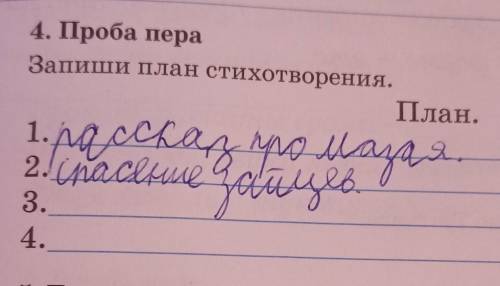 4. Проба пера
Запиши план стихотворения.
План.
1. рассказ про мазая.
2. спасение зайцев.
3.
4.